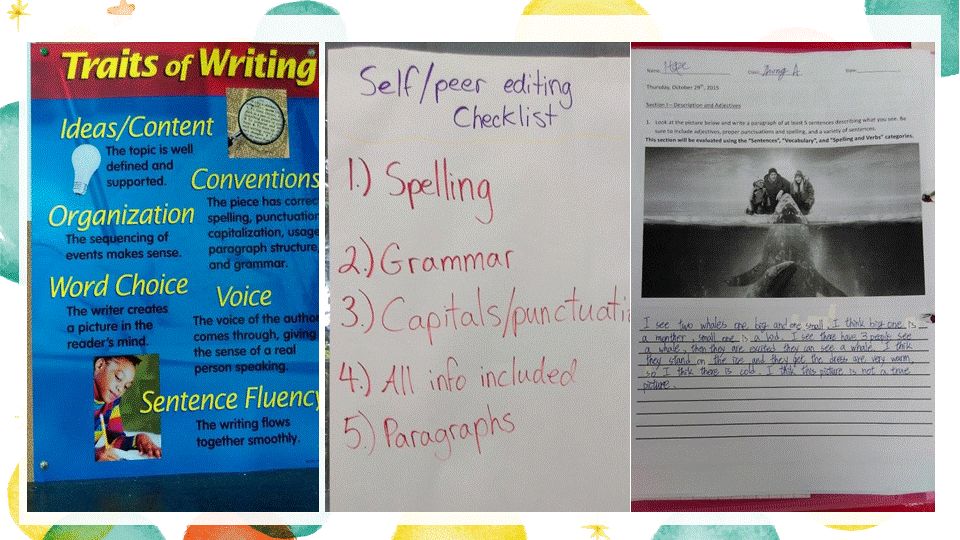 Traits of Writing
Ideas/Content
The topic is well
defined and
supported.
Conventions
The piece has correc
spelling, punctuation
capitalization, usage
paragraph structure,
and grammar.
Organization
The sequencing of
events makes sense.
Word Choice
The writer creates
a picture in the
reader's mind.
Voice
The voice of the author
comes through, giving
the sense of a real
person speaking.
Sentence Fluency
The writing flows
together smoothly.
Self/peer editing
Checklist
1.) Spelling
2.) Grammar
3.) Capitals/punctuati
4.) All info included
5.) Paragraphs
Name: Hope Class: A Date:
Thursday, October 29th, 2015
Section I – Description and Adjectives
1. Look at the picture below and write a paragraph of at least 5 sentences describing what you see. Be
sure to include adjectives, proper punctuations and spelling, and a variety of sentences.
This section will be evaluated using the "Sentences", "Vocabulary", and "Spelling and Verbs" categories.
I see two whales one big and one small. I think big one is
a monther, small one is a kid. I see there have 3 people see
a whale, then they are excited they can see a whale. I thik
they stand on the ice and they get the dress are very warm,
so I thik there is cold. I thik this picture is not a true
picture.